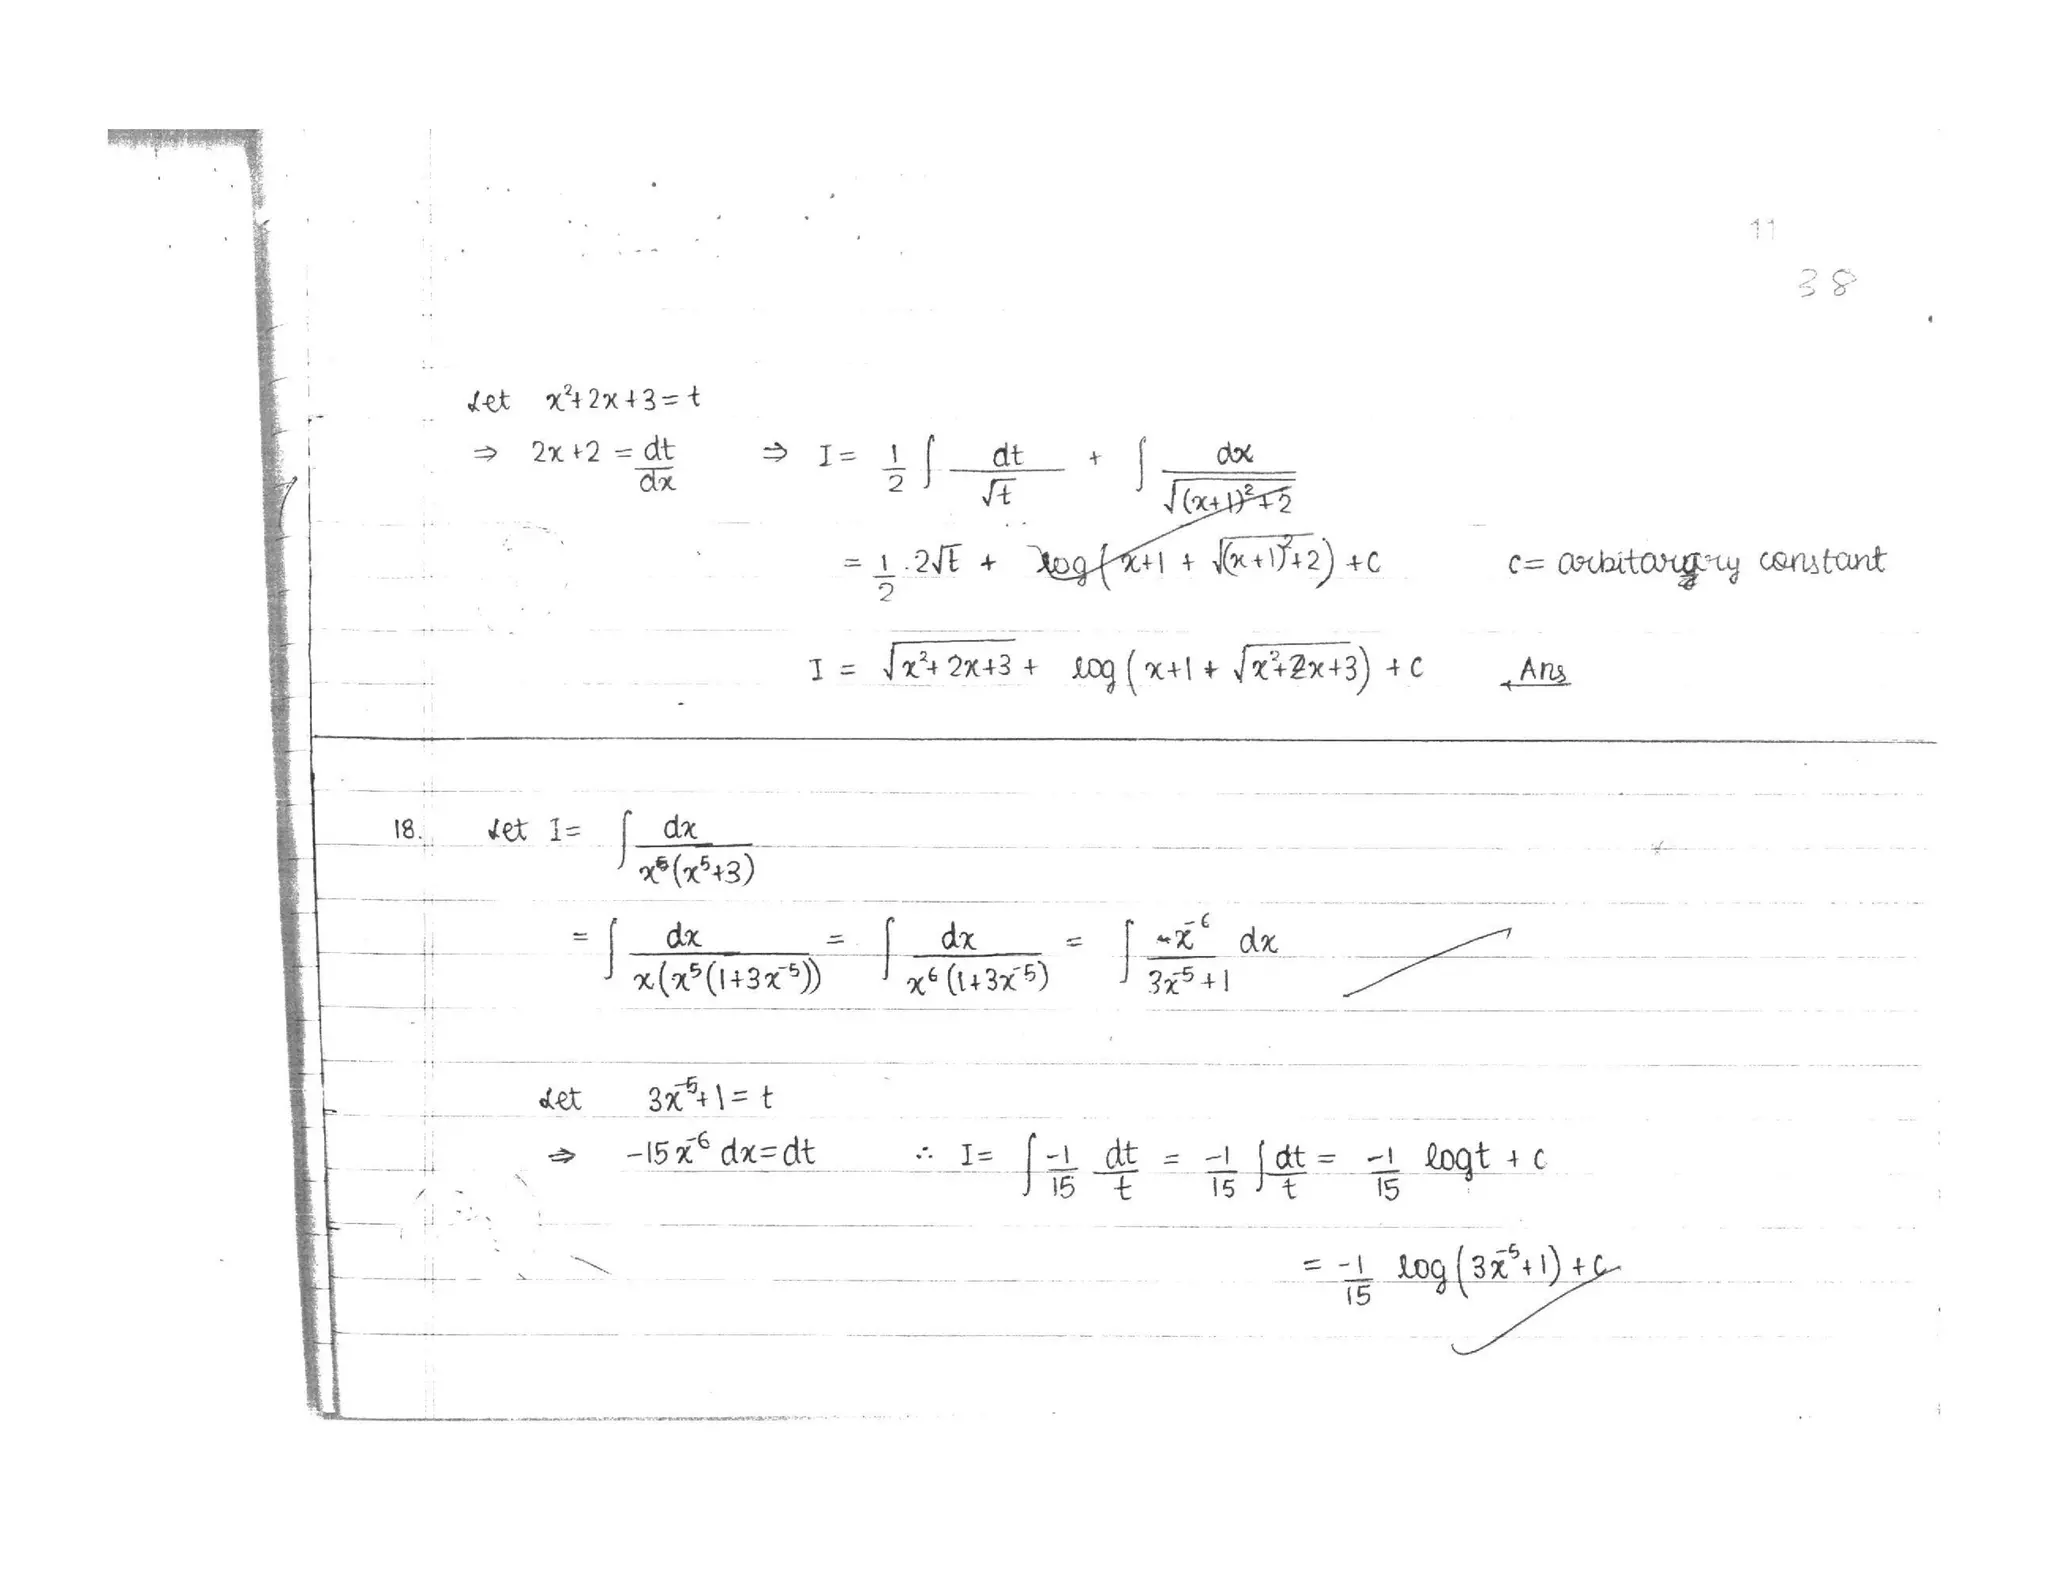 11
38
Let x²+2x+3=t
⇒ 2x+2 = dt/dx ⇒ I = 1/2 ∫ dt/√t + ∫ dx/√((x+1)²+2)
= 1/2 . 2√t + log(x+1 + √((x+1)²+2)) + C C = arbitrary constant
I = √(x²+2x+3) + log(x+1+√(x²+2x+3)) + C Ans
18. Let I = ∫ dx/(x(x⁵+3))
= ∫ dx/(x(x⁵(1+3x⁻⁵))) = ∫ dx/(x⁶(1+3x⁻⁵)) = ∫ x⁻⁶ dx/(3x⁻⁵+1)
Let 3x⁻⁵+1 = t
⇒ -15x⁻⁶ dx = dt ∴ I = ∫ -1/15 dt/t = -1/15 ∫ dt/t = -1/15 log t + C
= -1/15 log(3x⁻⁵+1) + C